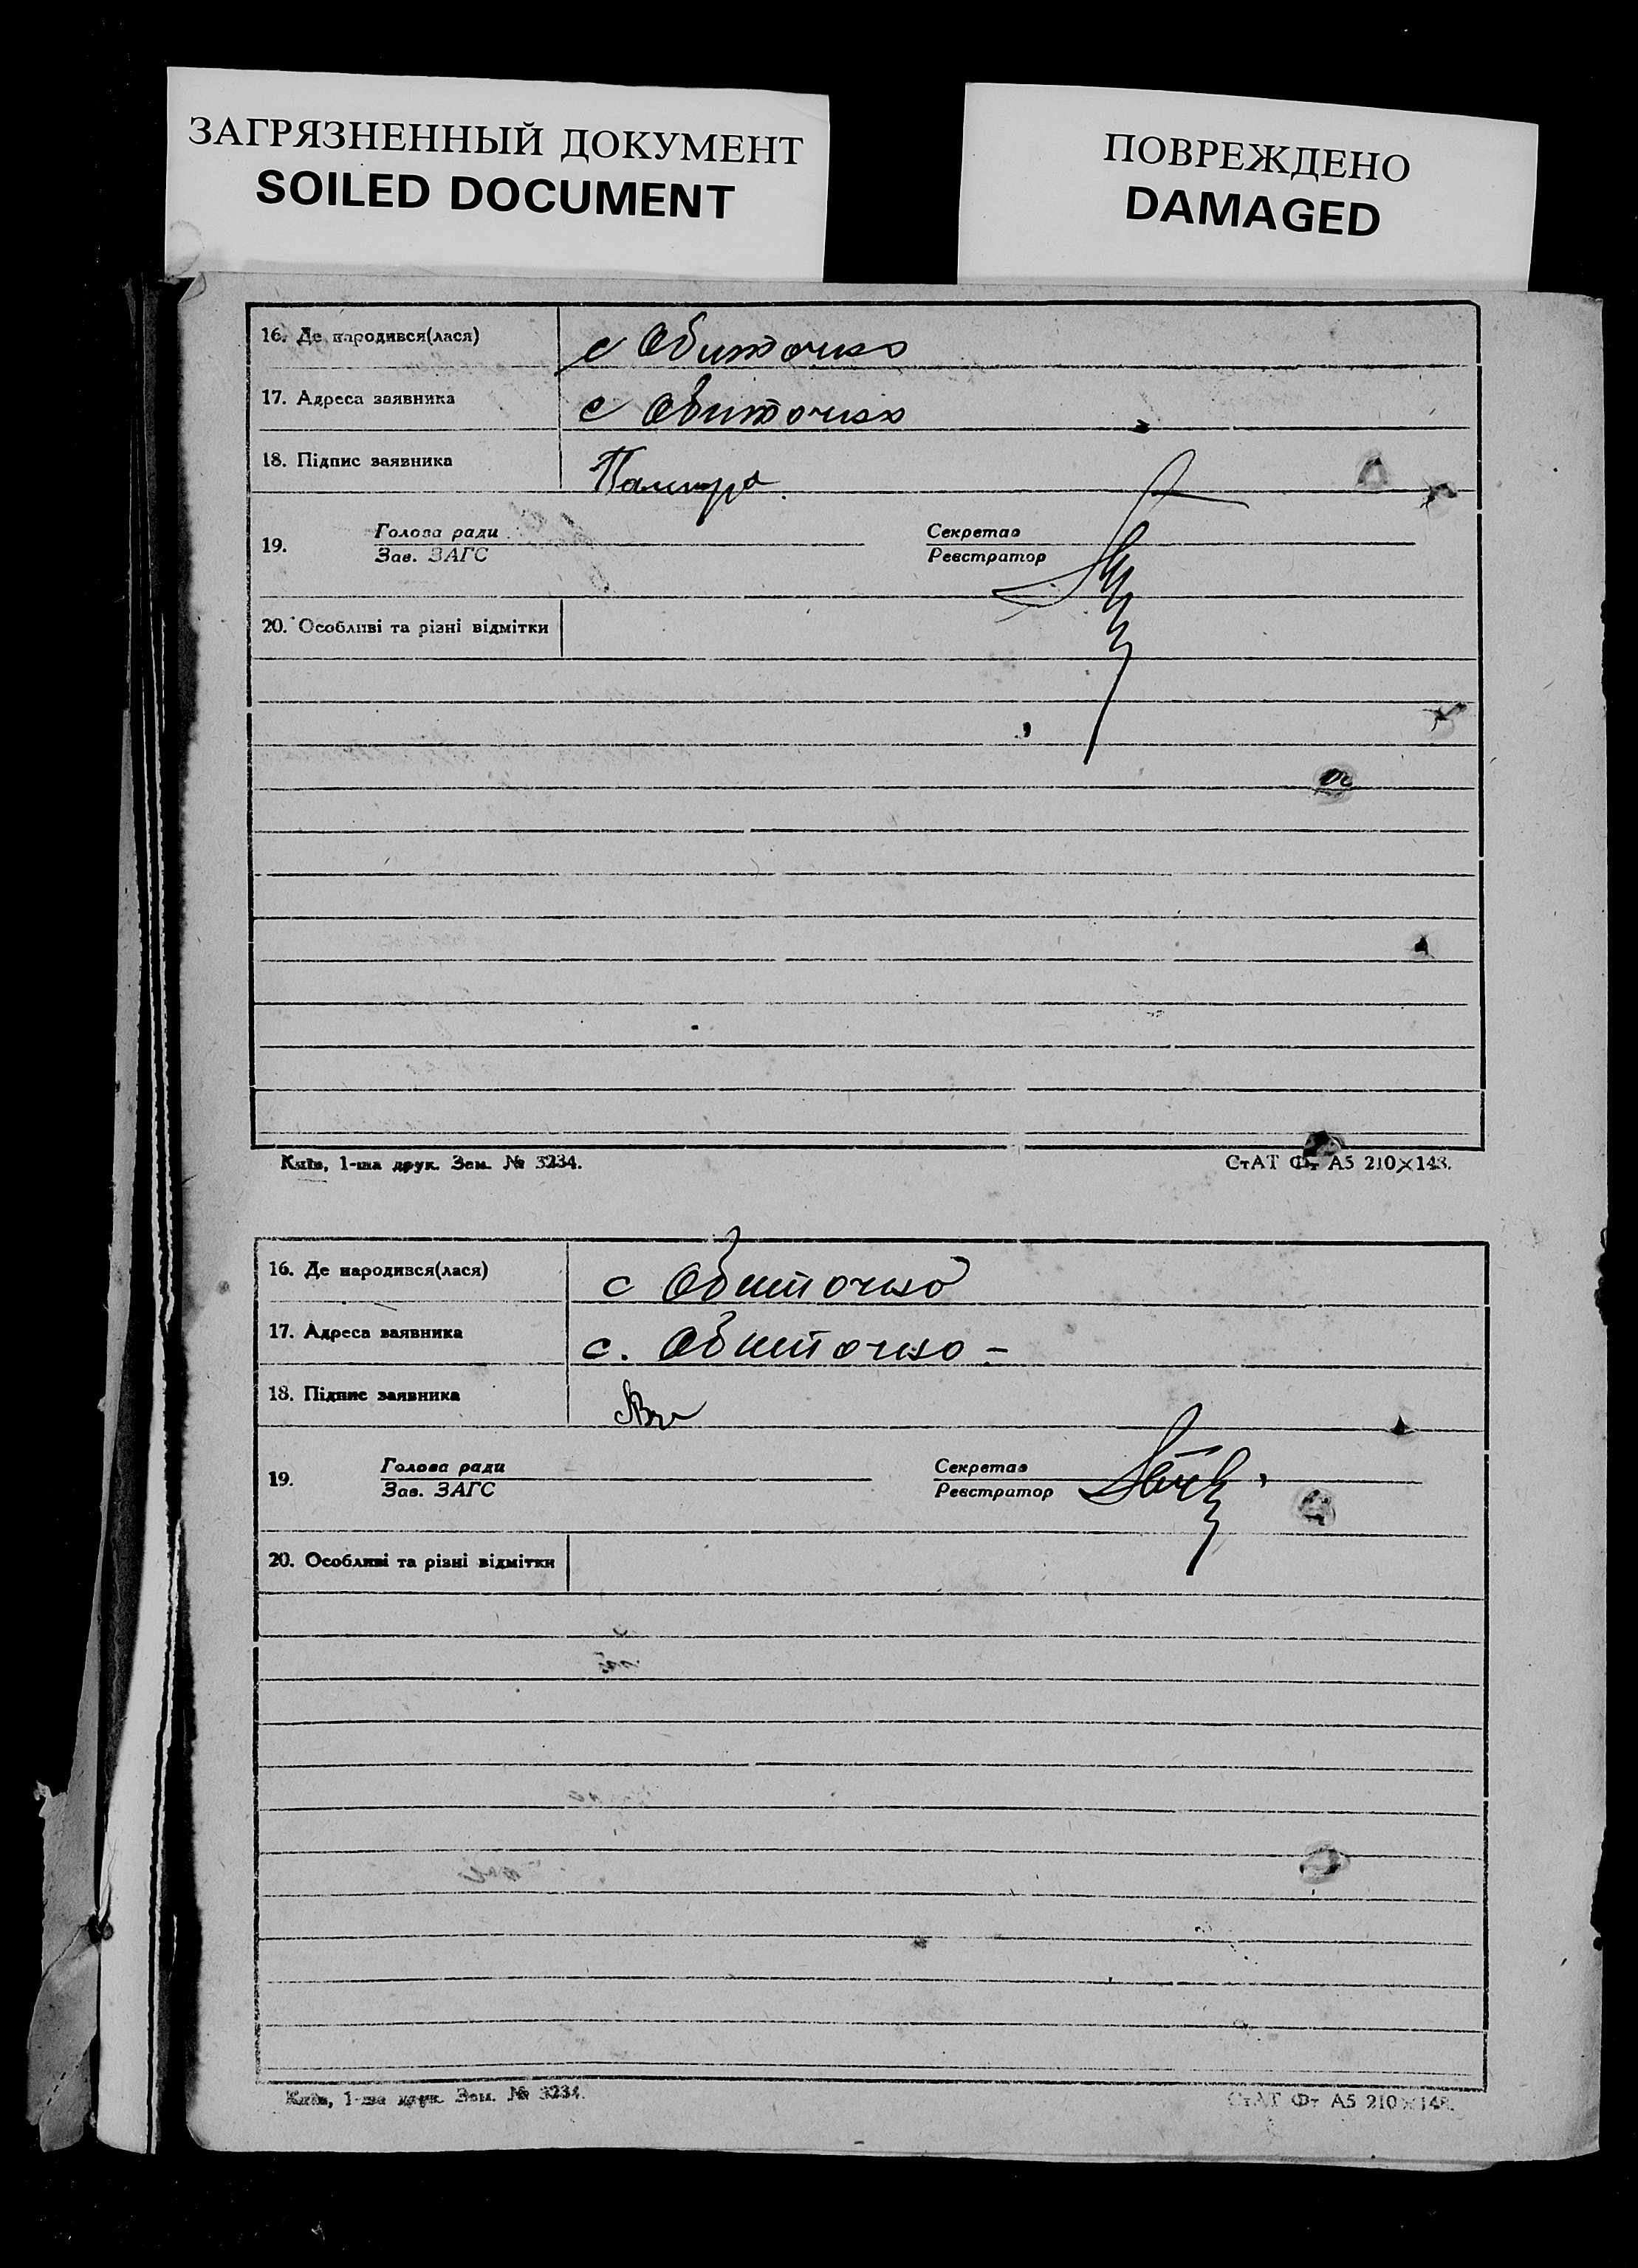 ЗАГРЯЗНЕННЫЙ ДОКУМЕНТ
SOILED DOCUMENT
ПОВРЕЖДЕНО
DAMAGED
16. Де народився(лася) с Обиточно
17. Адреса заявника с Обиточно
18. Підпис заявника
19. Голова ради Секретар
Зав. ЗАГС Реєстратор
20. Особливі та різні відмітки
Київ, 1-ша друк. Зам. № 3234. СтАТ Фт А5 210×148.
16. Де народився(лася) с Обиточно
17. Адреса заявника с. Обиточно –
18. Підпис заявника
19. Голова ради Секретар
Зав. ЗАГС Реєстратор
20. Особливі та різні відмітки
Київ, 1-ша друк. Зам. № 3234. СтАТ Фт А5 210×148.